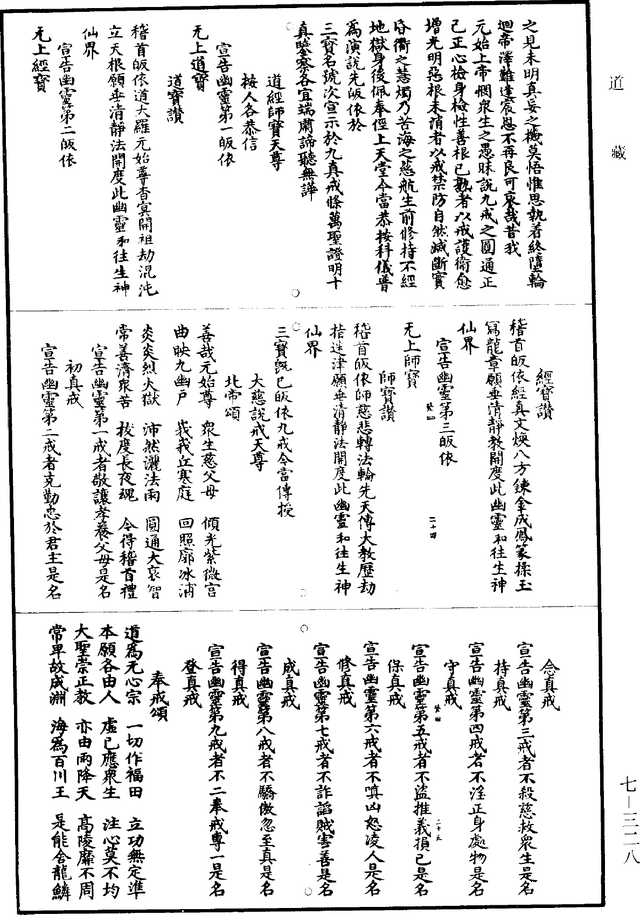 道藏
之見未明真妄之機莫悟惟思執着終墮輪
迴帝澤難逢宸恩不再良可哀哉昔我
元始上帝憫衆生之愚昧說九戒之圓通正
己正心檢身檢性善根已熟者以戒護衛愈
增光明惡根未消者以戒禁防自然滅斷實
昏衢之慧燭乃苦海之慈航生前修持不經
地獄身後佩奉徑上天堂今當恭按科儀普
爲演說先皈依於
三寶名號次宣示於九真戒條萬聖證明十
真鑒察各宜端肅諦聽無譁
道經師寶天尊
按人各恭信
宣告幽靈第一皈依
无上道寶
道寶讚
稽首皈依道大羅元始尊杳冥開祖劫混沌
立天根願垂清靜法開度此幽靈和往生神
仙界
宣告幽靈第二皈依
无上經寶
經寶讚
稽首皈依經真文煥八方鍊金成鳳篆揉玉
寫龍章願垂清靜教開度此幽靈和往生神
仙界
宣告幽靈第三皈依
无上師寶
師寶讚
稽首皈依師慈悲轉法輪先天傳大教歷劫
指迷津願垂清靜法開度此幽靈和往生神
仙界
三寶既已皈依九戒今當傳授
大慈說戒天尊
北帝頌
善哉元始尊　衆生慈父母　傾光紫微宫
曲映九幽戶　峩峩丘寒庭　回照廓冰浦
炎炎烈火獄　沛然灑法雨　圓通大哀智
常善濟衆苦　拔度長夜魂　令得稽首禮
宣告幽靈第一戒者敬讓孝養父母是名
初真戒
宣告幽靈第二戒者克勤忠於君主是名
念真戒
宣告幽靈第三戒者不殺慈救衆生是名
持真戒
宣告幽靈第四戒者不淫正身處物是名
守真戒
宣告幽靈第五戒者不盜推義損己是名
保真戒
宣告幽靈第六戒者不嗔凶怒凌人是名
修真戒
宣告幽靈第七戒者不詐謟賊害善是名
成真戒
宣告幽靈第八戒者不驕傲忽至真是名
得真戒
宣告幽靈第九戒者不二奉戒專一是名
登真戒
奉戒頌
道爲元心宗　一切作福田　立功無定準
本願各由人　虛已應衆生　注心莫不均
大聖崇正教　亦由雨降天　高陵靡不周
常卑故成淵　海爲百川王　是能舍龍鱗
七—三二八